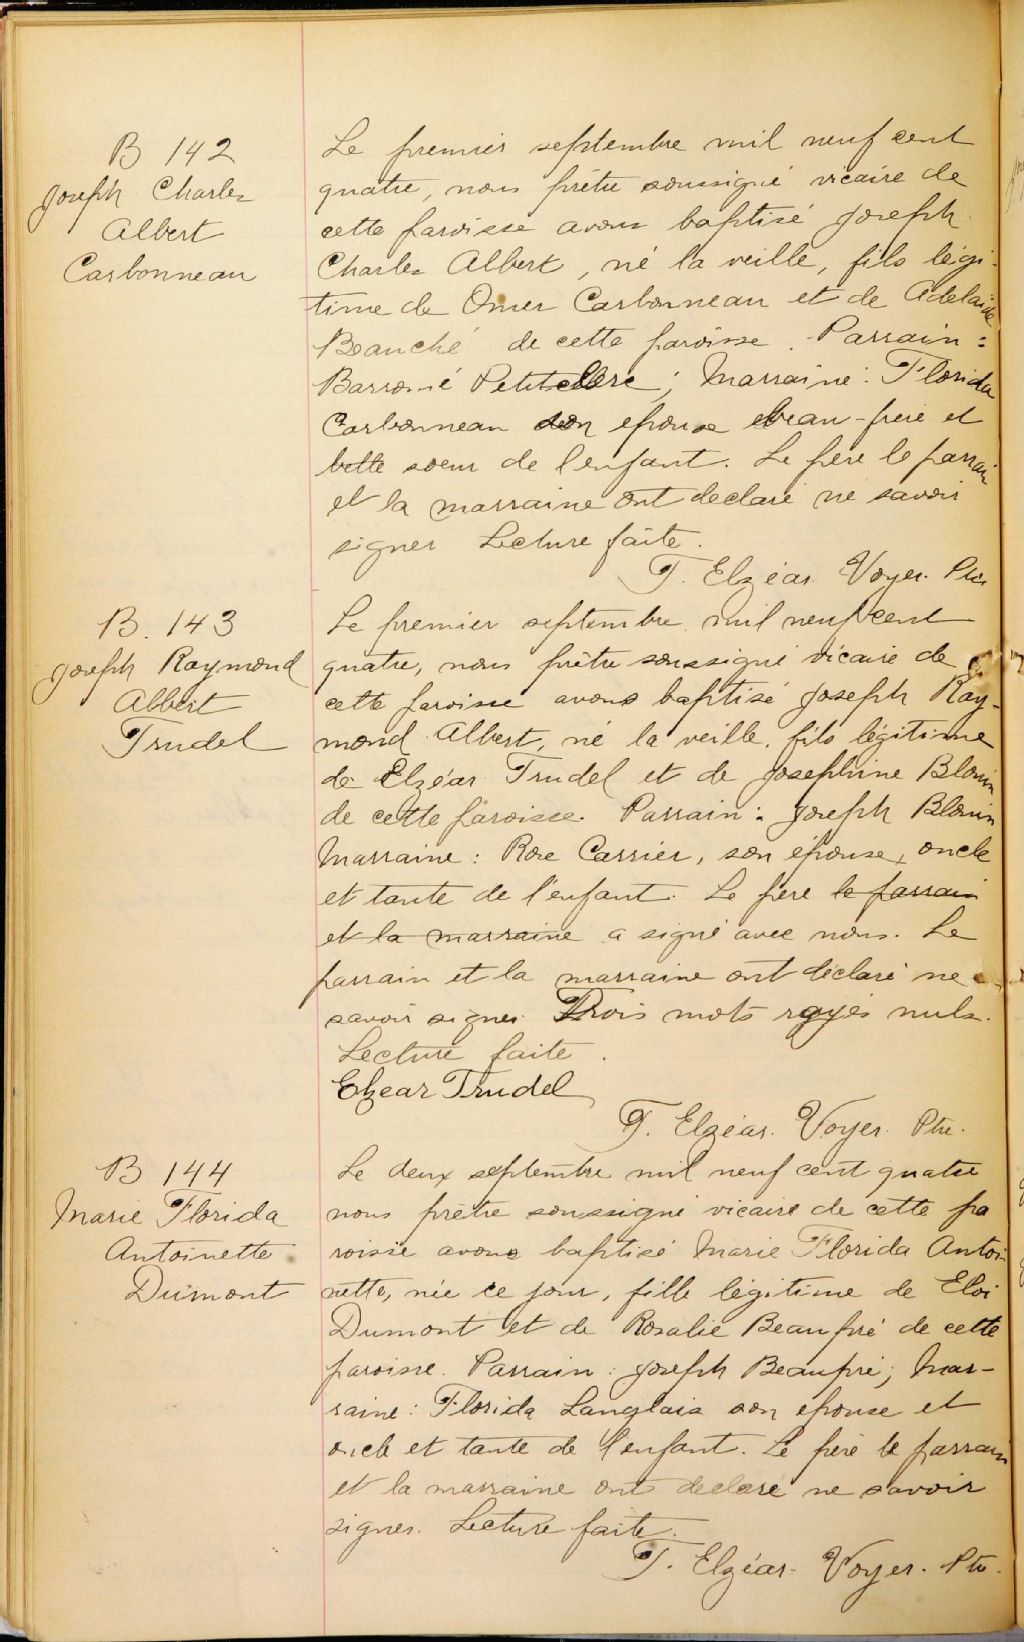 B 142
Joseph Charles
Albert
Carbonneau
Le premier septembre mil neuf cent
quatre, nous prêtre soussigné vicaire de
cette paroisse avons baptisé Joseph
Charles Albert, né la veille, fils légi-
time de Omer Carbonneau et de Adelaide
Beauché de cette paroisse. Parrain :
Barromé Petitclerc; Marraine : Florida
Carbonneau son épouse beau-frère et
belle soeur de l'enfant. Le père le parrain
et la marraine ont déclaré ne savoir
signer Lecture faite.
T. Elzéar. Voyer. Ptre
B. 143
Joseph Raymond
Albert
Trudel
Le premier septembre mil neuf cent
quatre, nous prêtre soussigné vicaire de
cette paroisse avons baptisé Joseph Ray-
mond Albert, né la veille, fils légitime
de Elzéar Trudel et de Josephine Blouin
de cette paroisse. Parrain : Joseph Blouin
Marraine : Rose Carrier, son épouse, oncle
et tante de l'enfant. Le père le parrain
et la marraine a signé avec nous. Le
parrain et la marraine ont déclaré ne
savoir signer. Trois mots rayés nuls.
Lecture faite.
Elzear Trudel
T. Elzéar. Voyer. Ptre.
B 144
Marie Florida
Antoinette
Dumont
Le deux septembre mil neuf cent quatre
nous prêtre soussigné vicaire de cette pa
roisse avons baptisé Marie Florida Antoi
nette, née ce jour, fille légitime de Eloi
Dumont et de Rosalie Beaupré de cette
paroisse. Parrain : Joseph Beaupré; Mar-
raine : Florida Langlais son épouse et
oncle et tante de l'enfant. Le père le parrain
et la marraine ont déclaré ne savoir
signer. Lecture faite.
T. Elzéar. Voyer. Ptre.